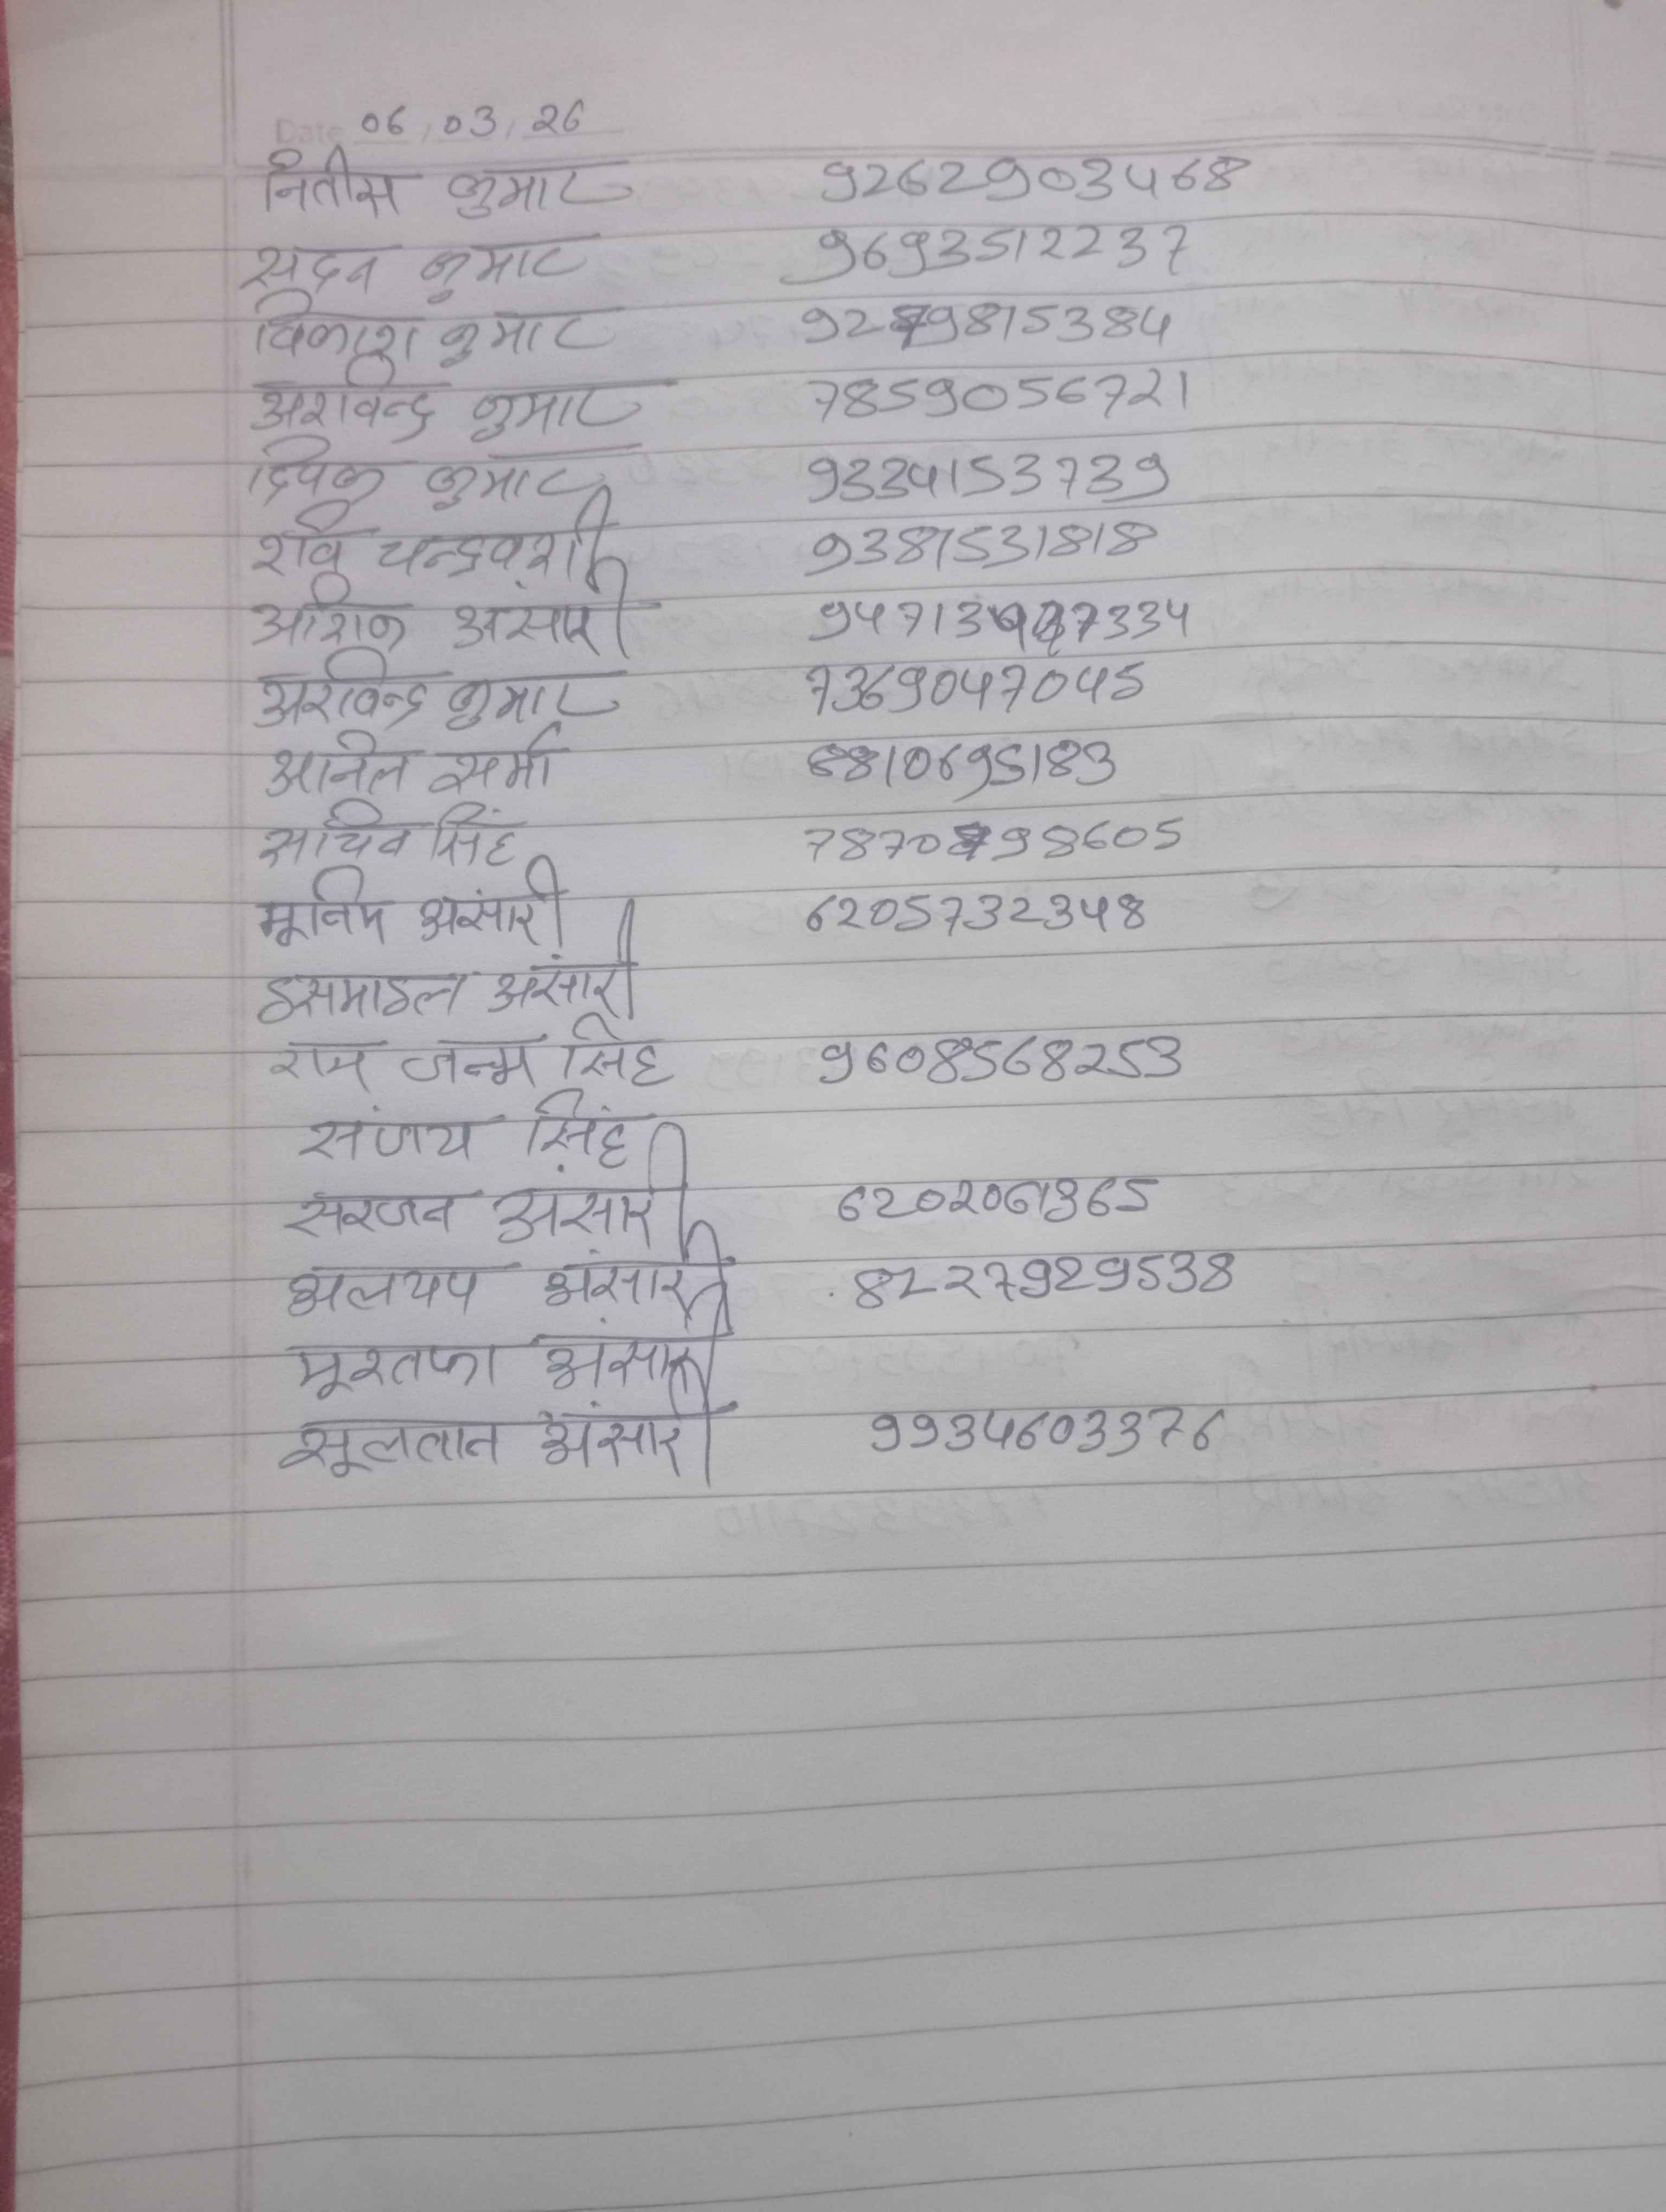 Date 06/03/26
नितीस कुमार 9262903468
सदन कुमार 9693512237
विकाश कुमार 9279815384
अरविन्द्र कुमार 7859056721
दिपक कुमार 9334153739
रवि चन्द्रवंशी 9381531818
आशिक अंसारी
अरविन्द्र कुमार 7369047045
अनिल सर्मा 8810695183
सचिन सिंह
अंसारी 6205732348
इसमाइल अंसारी
राम जन्म सिंह 9608568253
संजय सिंह
सरजन अंसारी 6202061365
अंसारी 8227929538
मूस्तफा अंसारी
सूलतान अंसारी 9934603376